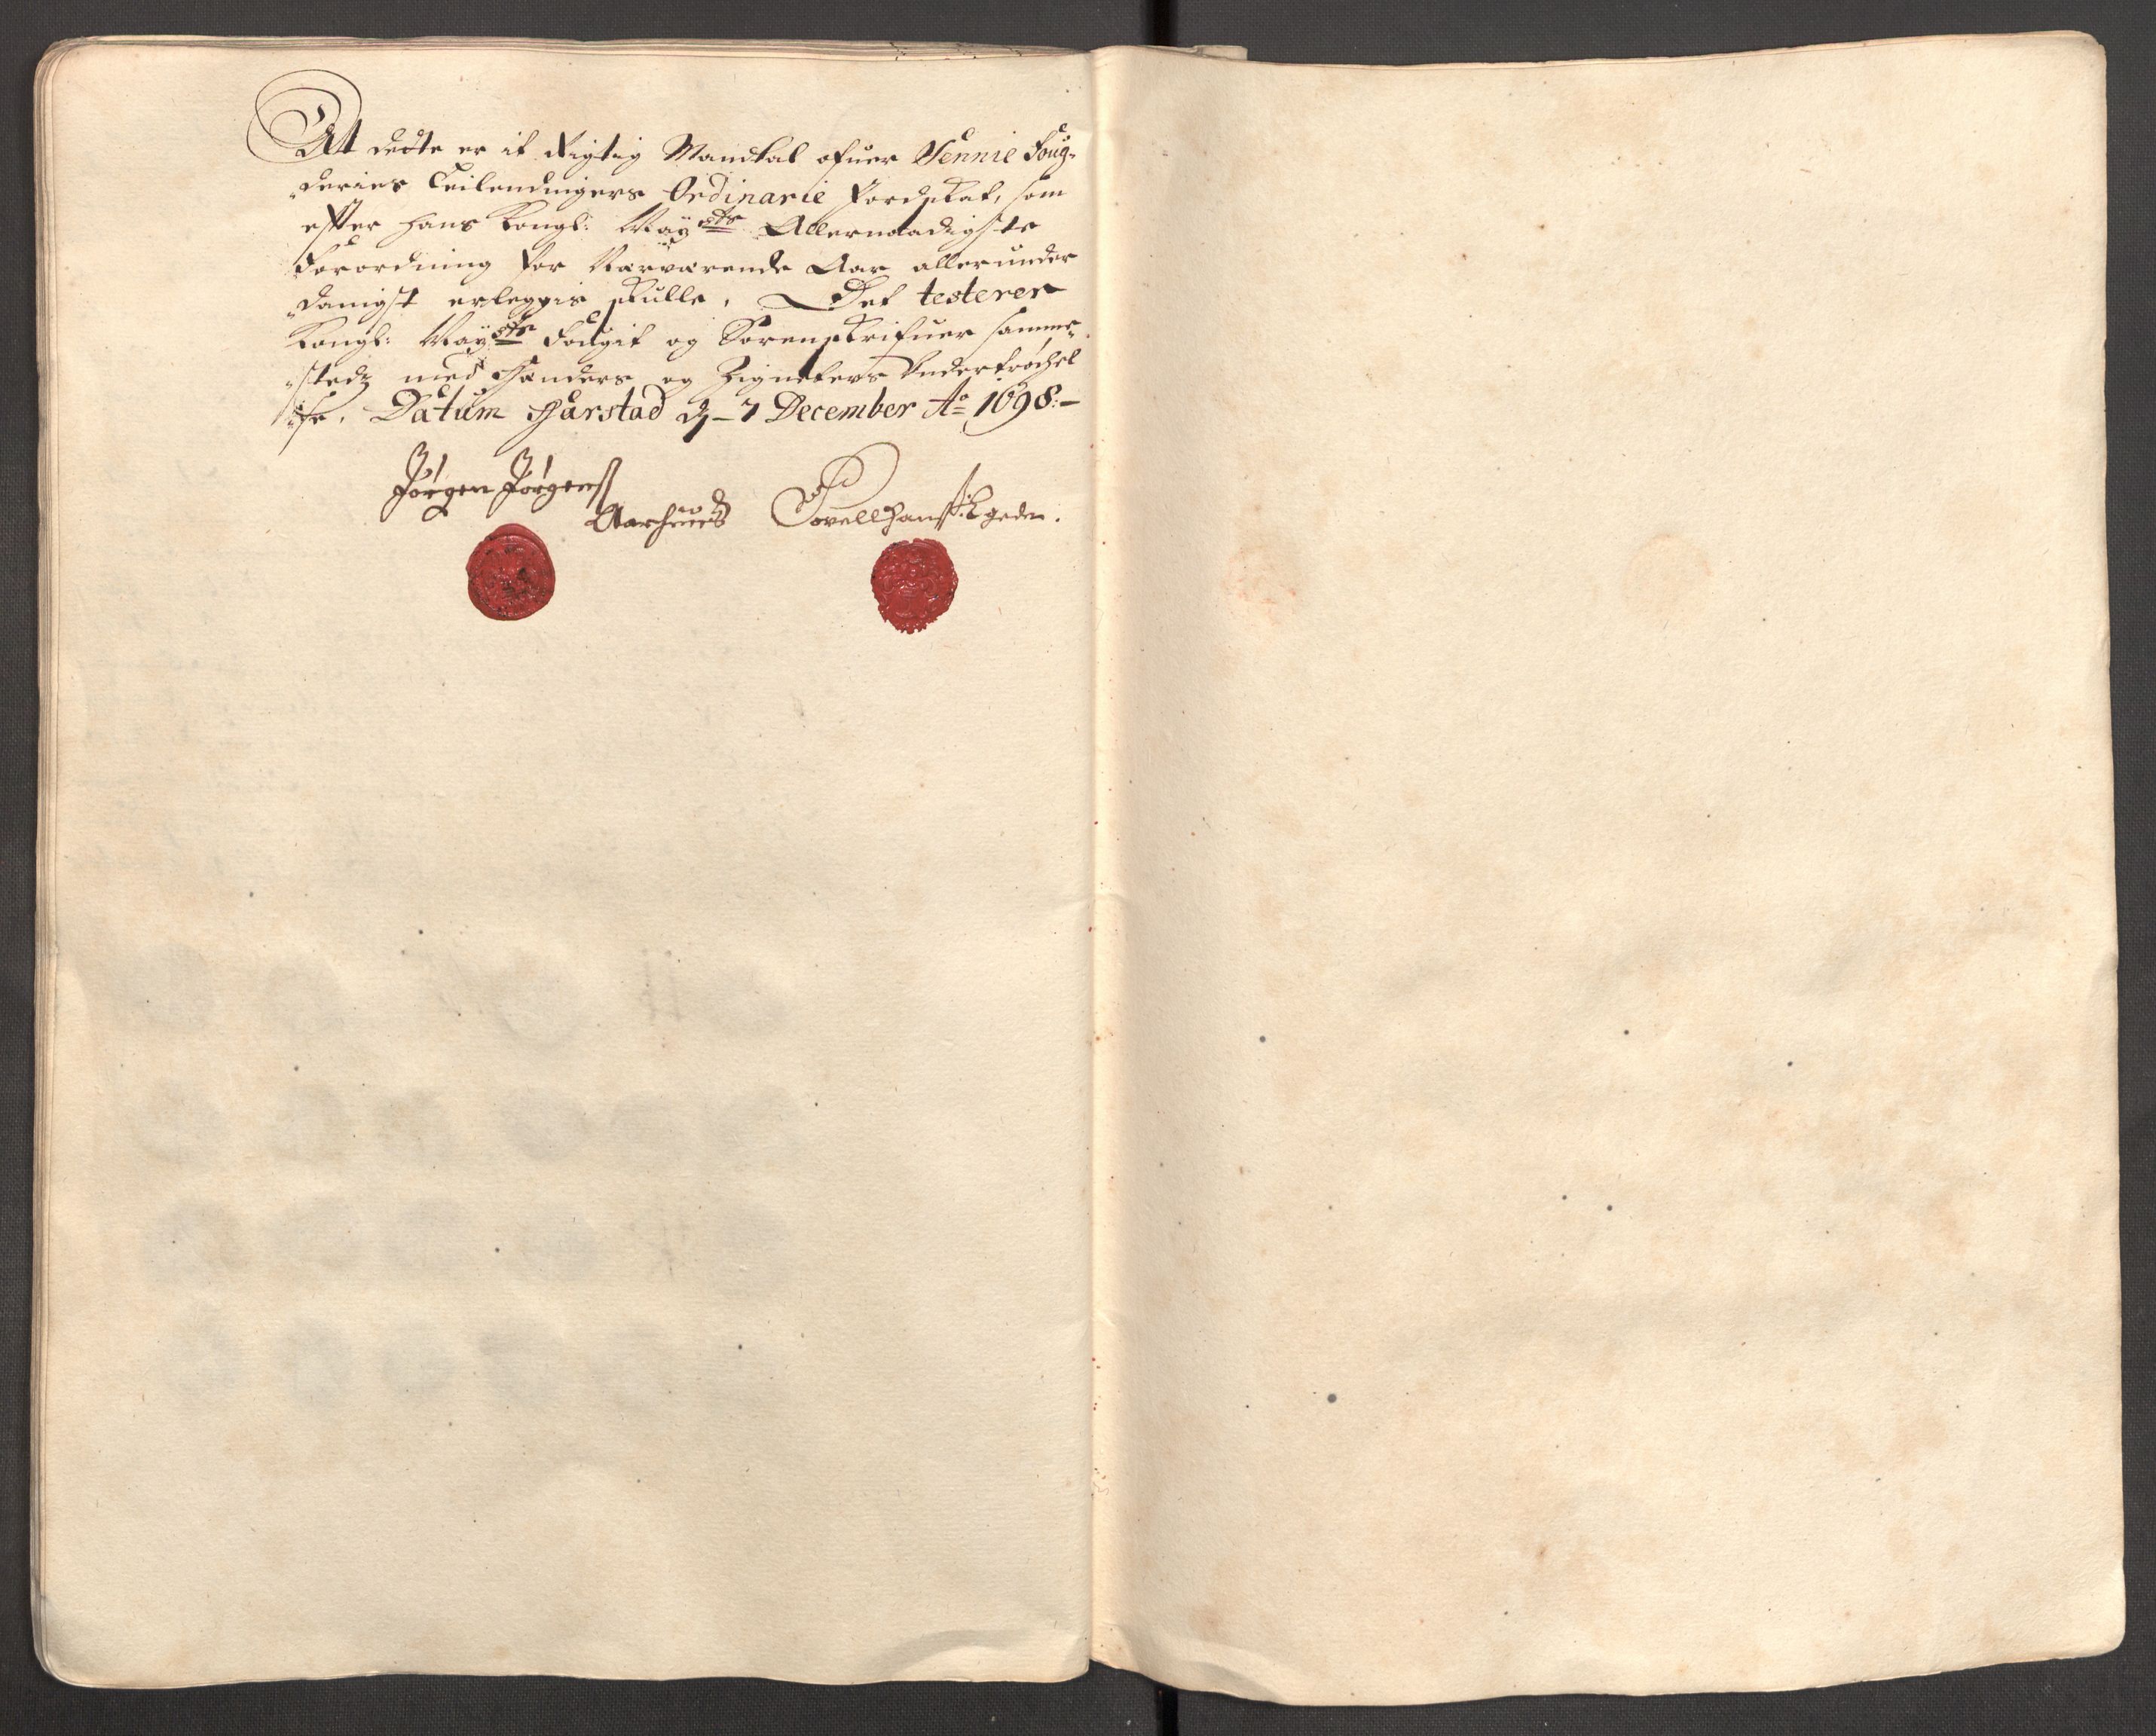 At dette er it Rigtig Mandtal ofuer Sennie Foug-
deries Leilendingers Ordinarie Jordskat, som
effter hans Kongl: Maÿsts Allernaadigste
Forordning for Nærværende Aar allerunder
danigst erleggis skulle, Det testerer
Kongl: Maÿsts Fougit og Sorenskrifuer samme-
stedz med Hænders og Zigneters Undertrøchel
se, Datum Harstad d - 7 December Ao 1698:-
Jørgen Jørgens
Aarhuus Povell Hans: Egede.